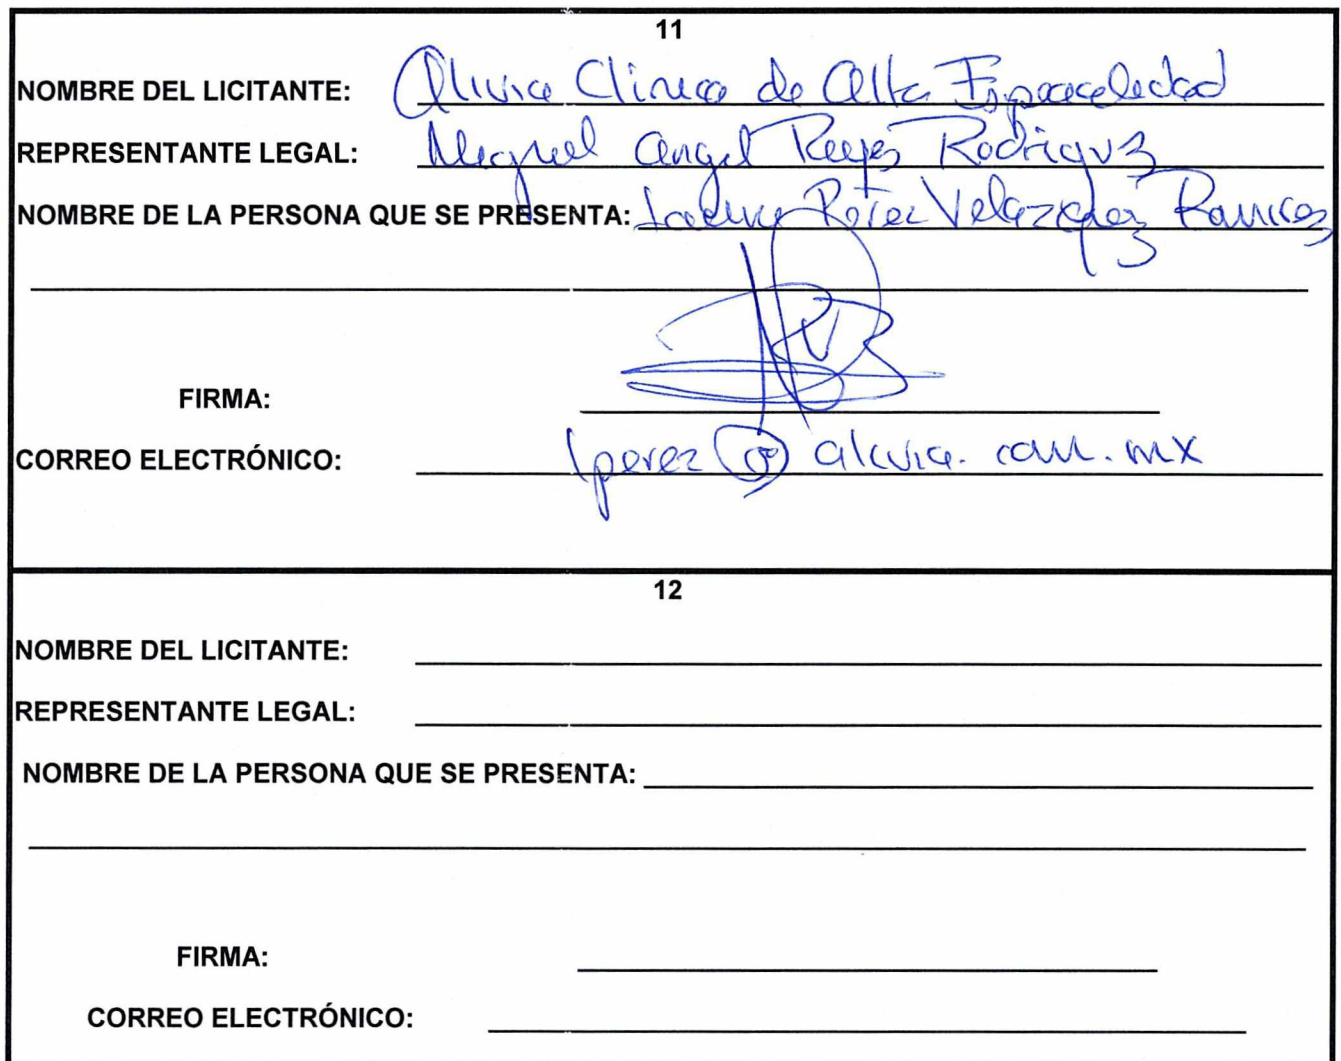 11
NOMBRE DEL LICITANTE: Alivia Clinica de Alta Especialidad
REPRESENTANTE LEGAL: Miguel Angel Reyes Rodriguez
NOMBRE DE LA PERSONA QUE SE PRESENTA: Velazquez Ramirez
FIRMA:
CORREO ELECTRÓNICO: lperez@alivia.com.mx
12
NOMBRE DEL LICITANTE:
REPRESENTANTE LEGAL:
NOMBRE DE LA PERSONA QUE SE PRESENTA:
FIRMA:
CORREO ELECTRÓNICO: